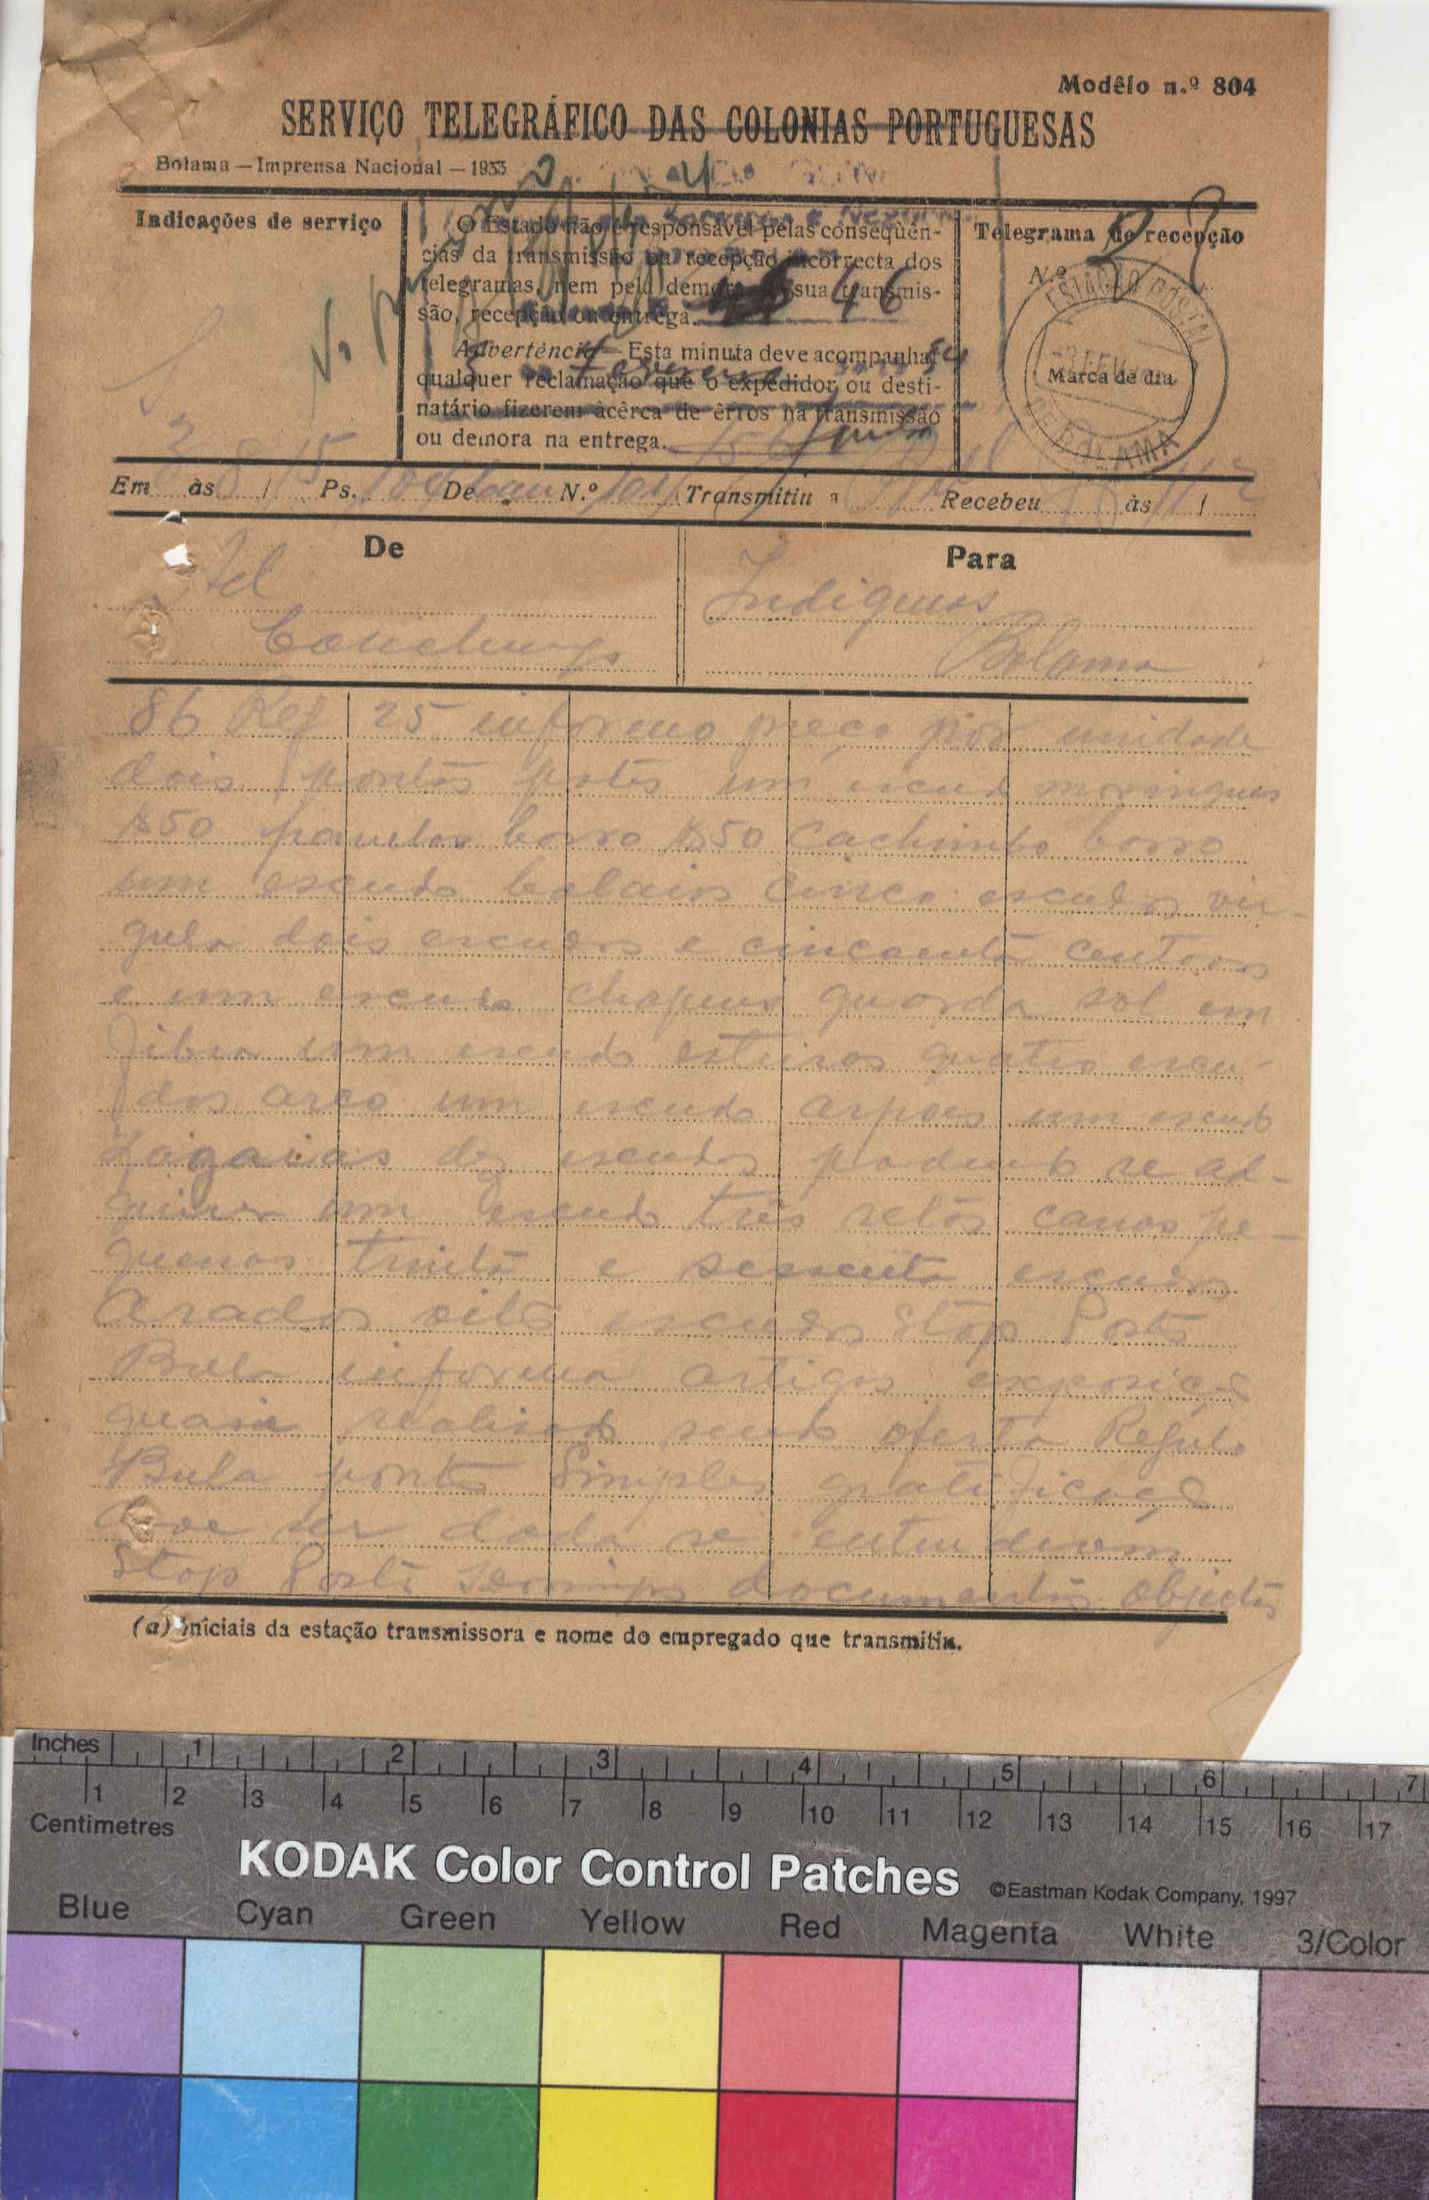 Modêlo n.º 804
SERVIÇO TELEGRÁFICO DAS COLONIAS PORTUGUESAS
Bolama — Imprensa Nacional — 1933
Indicações de serviço
O Estado não é responsável pelas conseqüên-
cias da transmissão ou recepção incorrecta dos
telegramas, nem pela demora na sua transmis-
são, recepção ou entrega.
46
Advertência — Esta minuta deve acompanhar
qualquer reclamação que o expedidor ou desti-
natário fizerem àcêrca de êrros na transmissão
ou demora na entrega.
Fevereiro
Telegrama de recepção
N.º
ESTAÇÃO POSTAL
Marca de dia
DE BOLAMA
Em às / Ps. De N.º Transmitiu a Recebeu às /
De
Para
Indigenas
Bolama
86 Ref 25 informo preço por unidade
dois pontos potes um escudo moringues
$50 panelas barro $50 cachimbo barro
um escudo balaios cinco escudos vir-
gula dois escudos e cincoenta centavos
e um escudo chapeus guarda sol em
fibra um escudo esteiras quatro escu-
dos arco um escudo arpoes um escudo
Zagaias dez escudos podendo se ad-
quirir um escudo três canoas pe-
quenas trinta e sessenta escudos
Arados oito escudos stop Posto
Bula informa artigos exposição
quasi realisado sendo oferta Regulo
Bula ponto Simples gratificação
deve ser dada se entenderem
Stop Posto documentos objectos
(a) Iniciais da estação transmissora e nome do empregado que transmitiu.
Inches 1 2 3 4 5 6 7
1 2 3 4 5 6 7 8 9 10 11 12 13 14 15 16 17
Centimetres
KODAK Color Control Patches ©Eastman Kodak Company, 1997
Blue Cyan Green Yellow Red Magenta White 3/Color